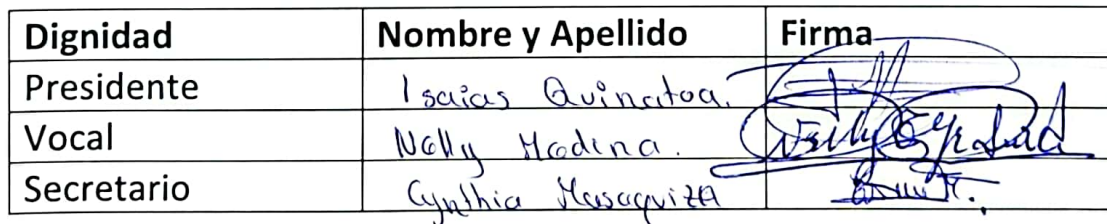 Dignidad Nombre y Apellido Firma
Presidente Isaias Quinatoa.
Vocal Nelly Medina.
Secretario Cynthia Masaquiza